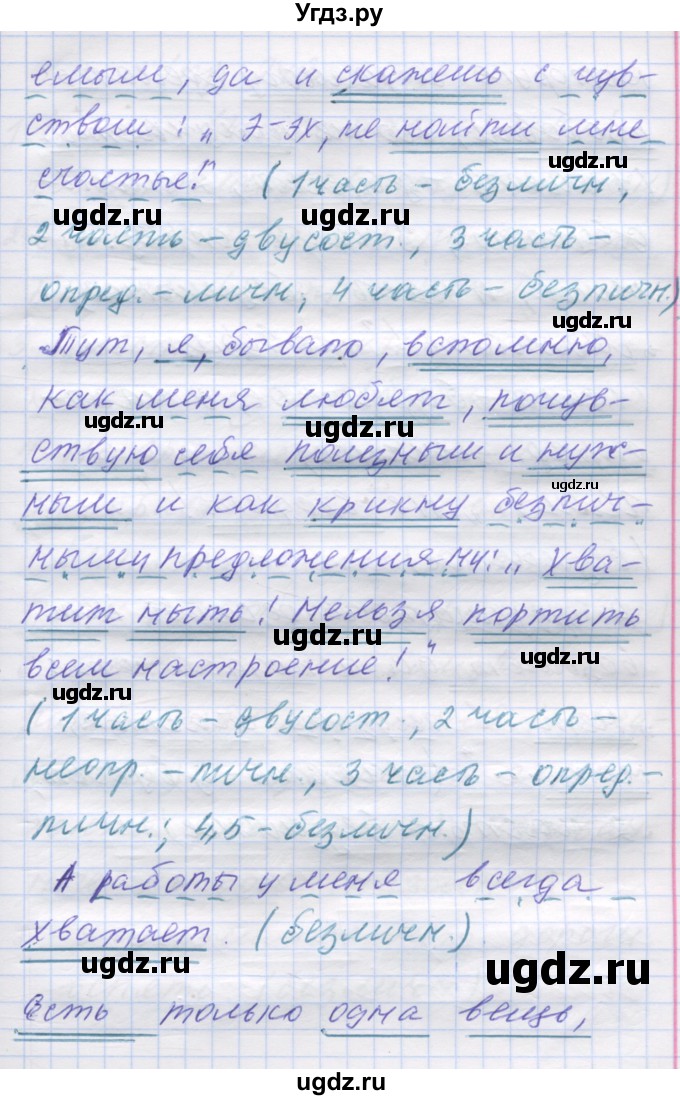 Угдз.ру
емым, да и скажешь с чув-
ством: „Э-эх, не найти мне
ugdz.ru
счастье!" (1 часть - безличн.,
ugdz.ru ugdz.ru
2 часть - двусост., 3 часть -
опред.-личн, 4 часть - безличн.)
ugdz.ru
Тут, я, бывало, вспомню,
как меня любят, почув-
ugdz.ru ugdz.ru
ствую себя полезным и нуж-
ным и как крикну безлич-
ными предложениями: „Хва-
тит ныть! Нельзя портить
ugdz.ru ugdz.ru
всем настроение!"
ugdz.ru
(1 часть - двусост., 2 часть -
неопр.-личн., 3 часть - опред.-
личн.; 4,5 - безличн.)
А работы у меня всегда
хватает. (безличн.)
ugdz.ru ugdz.ru
Есть только одна вещь,
ugdz.ru